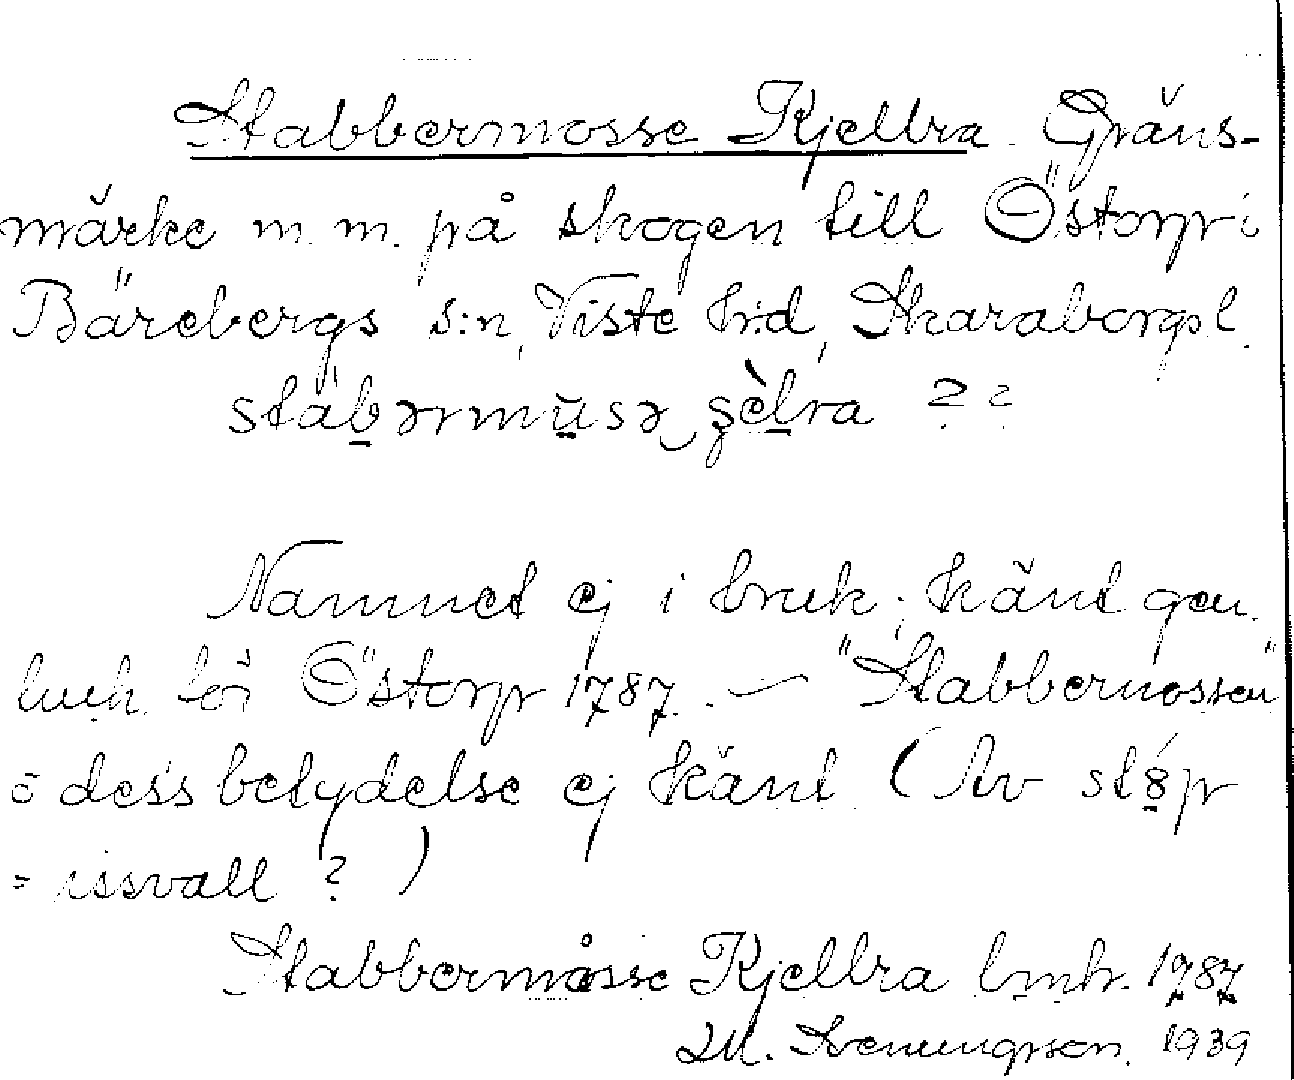 Stabbermosse Kjellra. Gräns-
märke m.m. på skogen till Östorp i
Bärebergs s:n, Viste h:d, Skaraborgs l.
stabərmusə çèlra ? ?
Namnet ej i bruk; känt gen.
lmh. för Östorp 1787. — "Stabbermossen"
= dess betydelse ej känt (Av
= issvall ? )
Stabbermåsse Kjellra lmh. 1787
M. 1939